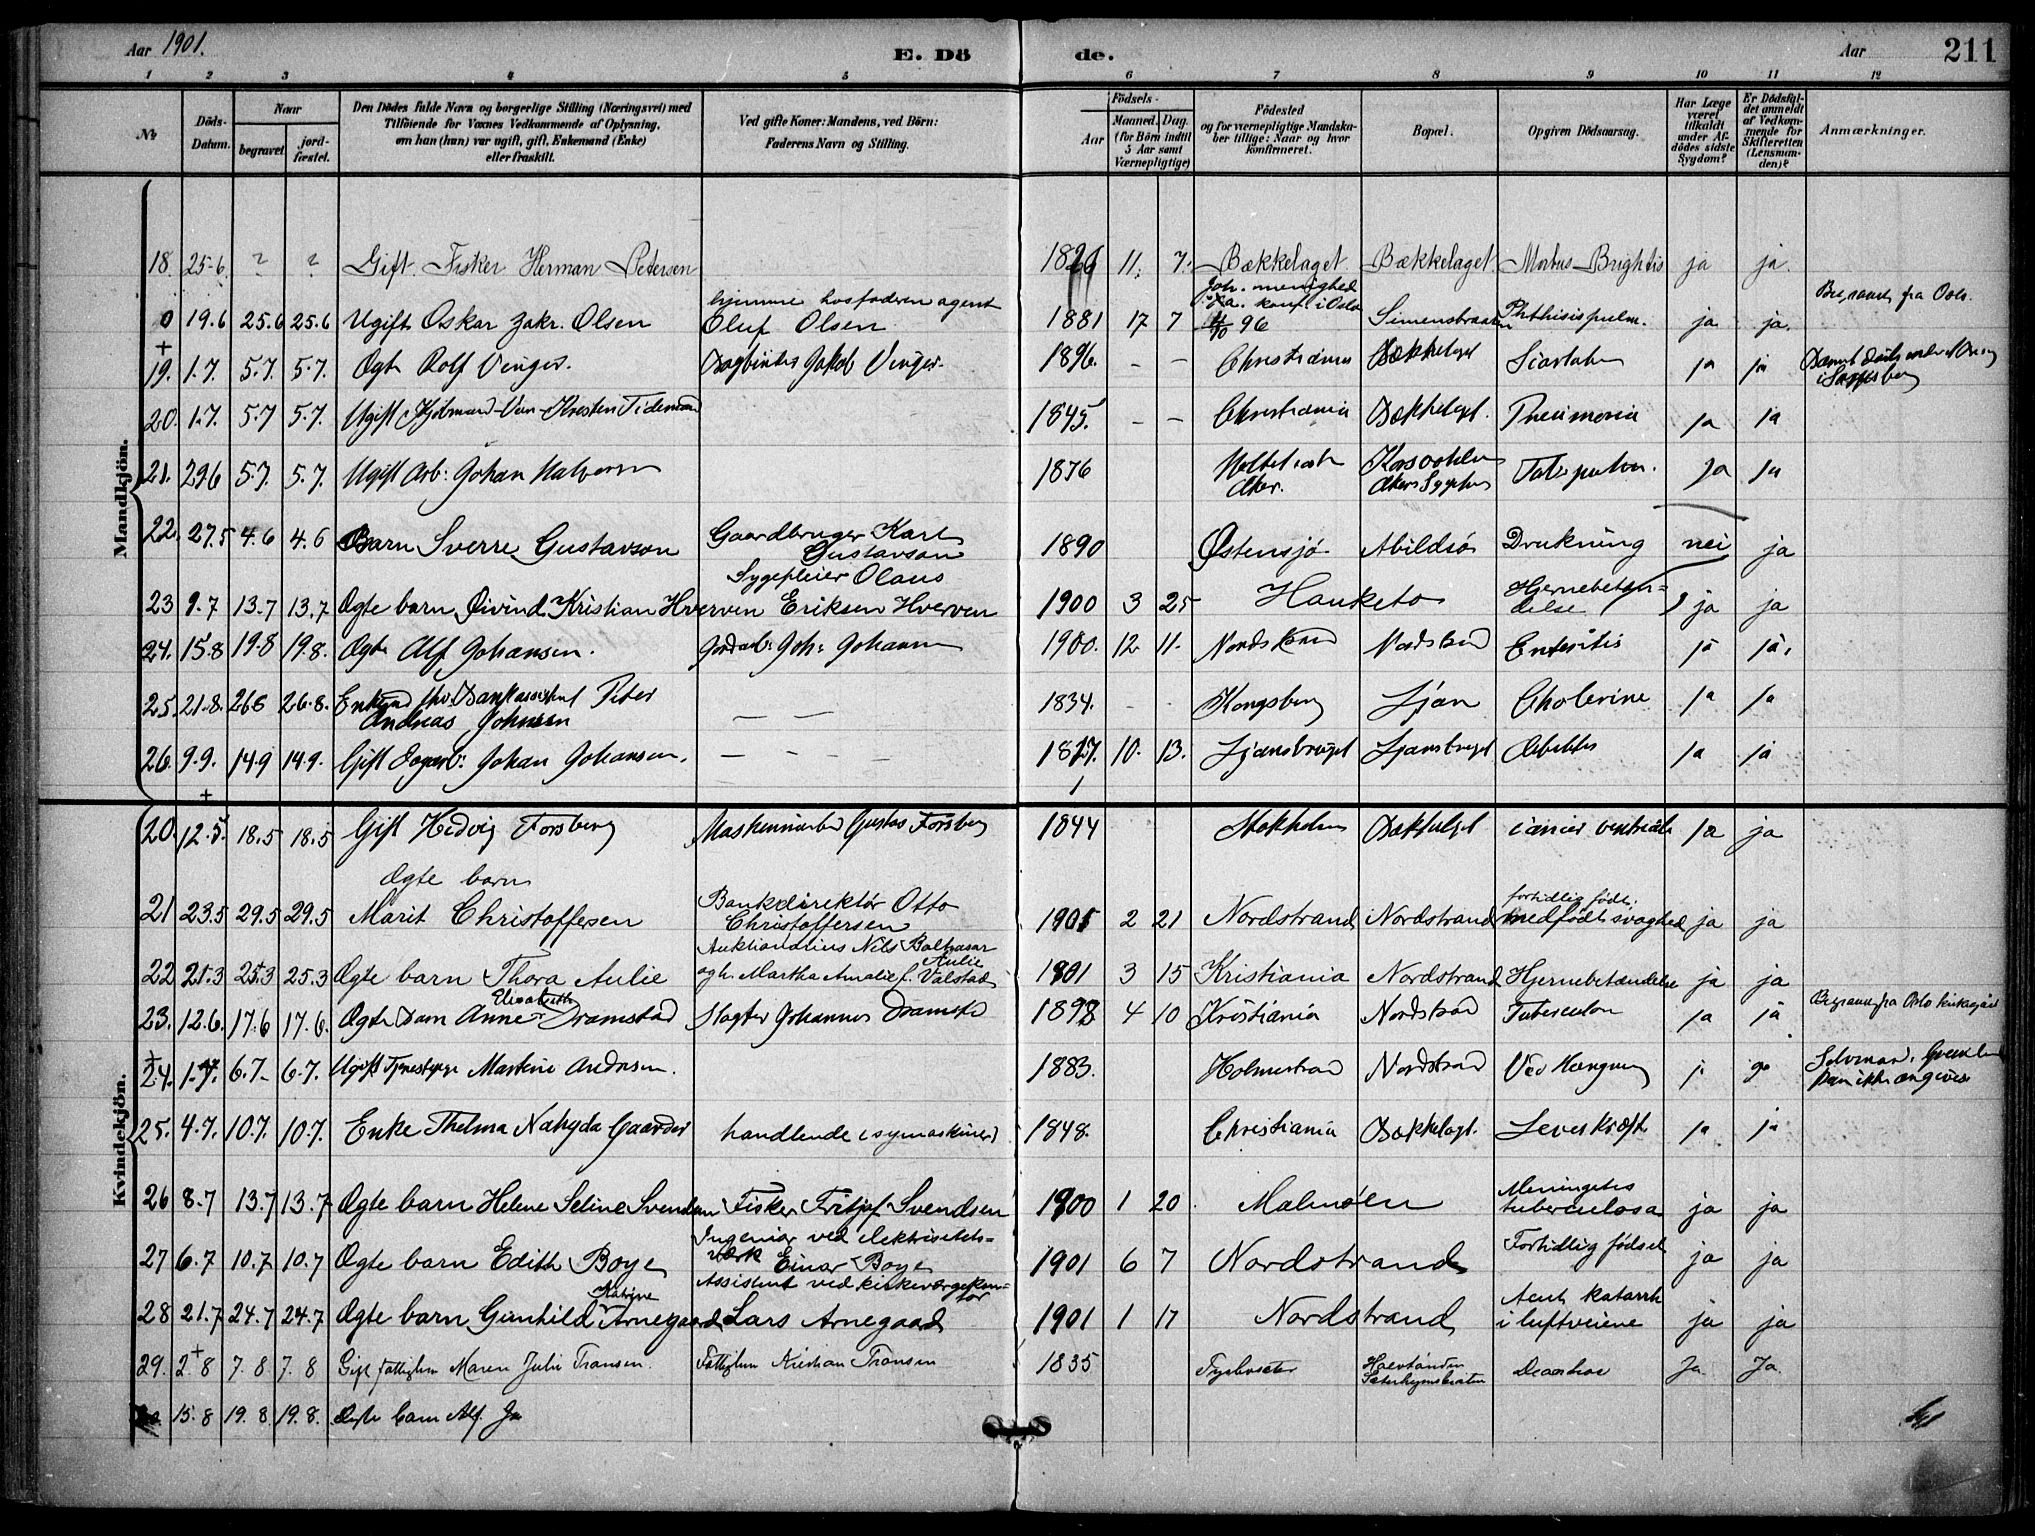 Aar 1901.
E. Dö de.
Aar
211
1 2 3 4 5 6 7 8 9 10 11 12
№
Döds-Datum.
Naar
begravet
jord-fæstet.
Den Dödes fulde Navn og borgerlige Stilling (Næringsvei) med
Tilföiende for Voxnes Vedkommende af Oplysning,
om han (hun) var ugift, gift, Enkemand (Enke)
eller fraskilt.
Ved gifte Koner: Mandens, ved Börn:
Faderens Navn og Stilling.
Födsels-
Aar
Maaned. Dag.
(for Börn indtil
5 Aar samt
Værnepligtige)
Födested
og for værnepligtige Mandska-
ber tillige: Naar og hvor
konfirmeret.
Bopæl.
Opgiven Dödsaarsag.
Har Læge
været
tilkaldt
under Af-
dödes sidste
Sygdom?
Er Dödsfal-
det anmeldt
af Vedkom-
mende for
Skifteretten
(Lensman-
den)?
Anmærkninger.
Mandkjön.
18. 25-6. ? ? Gift. Fisker Herman Pedersen 11. 7. Bækkelaget Bækkelaget Morbus Brightis ja ja.
hjemme hos faderen agent
0 19.6 25.6 25.6 Ugift Oskar Zakr. Olsen Oluf Olsen 1881 17 7 96 Phthisis pulm. ja ja.
19. 1.7. 5.7. 5.7. Ægte Rolf Jakob 1896. - - Christiania Bækkelaget ja ja
20. 1.7. 5.7 5.7. Ugift 1845. - - Christiania Bækkelaget. Pneumonia ja ja
21. 29.6 5.7. 5.7. Ugift Arb: Johan Halvorsen 1876 Aker. ja ja
22. 27.5 4.6 4.6 Barn Sverre Gustavson Gaardbruger Karl
Gustavson 1890 Østensjø Abildsø Drukning nei ja
Sygepleier Olaus
23 9.7 13.7 13.7 Ægte barn Øivind Kristian Hverven Eriksen Hverven 1900 3 25 Hauketo Hjernebetæn-
delse ja ja
24. 15.8 19.8 19.8. Ægte Alf Johansen. Joh: Johansen 1900. 12 11. Nordstrand Nordstrand Enteritis ja ja.
25. 21.8. 26.8 26.8. Peter
Andreas Johnsen — — 1834. - - Kongsberg Ljan Cholerine ja ja
26. 9.9. 14.9 14.9. Gift Johan Johansen. — - — 10. 13. Ljansbruget Ljansbruget ja ja
Kvindekjön.
20. 12.5. 18.5 18.5 Gift Hedvig Forsberg Gustav Forsberg 1844 Stokholm Bækkelaget cancer ventriculi ja ja
Ægte barn
21 23.5 29.5 29.5 Marit Christoffersen Bankdirektør Otto
Christoffersen 1901 2 21 Nordstrand Nordstrand fortidlig født:
medfødt svaghed ja ja
22 21.3 25.3 25.3 Ægte barn Thora Aulie Nils Balthasar
Aulie
og h. Martha Amalie f. Valstad 1901 3 15 Kristiania Nordstrand Hjernebetændelse ja ja
23. 12.6. 17.6 17.6. Ægte Barn Anne Elisabeth Dramstad Slagter Johannes Dramstad 1898 4 10 Kristiania Nordstrand Tuberculose ja ja
24. 1.7. 6.7. 6.7. Ugift Tjenestepige Martine Andresen. 1883. Holmestrand Nordstrand Ved Hængning
25. 4.7. 10.7. 10.7. Enke Thelma Nahyda Gaarder handlende (symaskiner) 1848. Christiania Bækkelaget. Leverkræft ja ja
26 8.7 13.7 13.7 Ægte barn Helene Seline Svendsen Fisker Fritjof Svendsen 1900 1 20 Malmøen Meningetis
tuberculosa ja ja
Ingeniør ved elektrisitets-
27 6.7 10.7 10.7 Ægte barn Edith Boye værk Einar Boye 1901 6 7 Nordstrand Fortidlig fødsel ja ja
Assistent ved kirkeværgekon-
tor
28 21.7 24.7 24.7 Ægte barn Gunhild Katrine Arnegaard Lars Arnegaard 1901 1 17 Nordstrand Acut katarrh
i luftveiene ja ja
29. 2.8 7.8 7.8 Gift fattiglem Maren Julie Fransen. Fattiglem Kristian Fransen 1835 Ja Ja.
15.8 19.8. 19.8. Ægte barn Alf. Jo